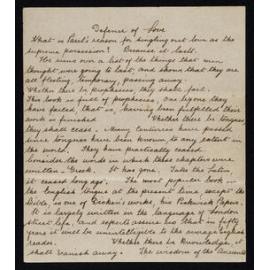 Defense of Love
What is Paul's reason for singling out love as the
supreme possession? Because it lasts.
He runs over a list of the things that men
thought were going to last, and shows that they are
all fleeting, temporary, passing away.
Whether there be prophecies, they shall fail.
This book is full of prophecies. One by one they
have failed, that is, having been fulfilled their
work is finished. Whether there be tongues
they shall cease. Many centuries have passed
since tongues have been known, to any extent in
the world. They have practically ceased.
Consider the words in which these chapters were
written - Greek. It has gone. Take the Latin
it ceased long ago. The most popular book in
the English tongue at the present time, except the
Bible, is one of Dickens's works, his Pickwick Papers.
It is largely written in the language of London
street life, and experts assure us that in fifty
years it will be unintelligible to the average English
reader. Whether there be Knowledge, it
shall vanish away. The wisdom of the Ancients